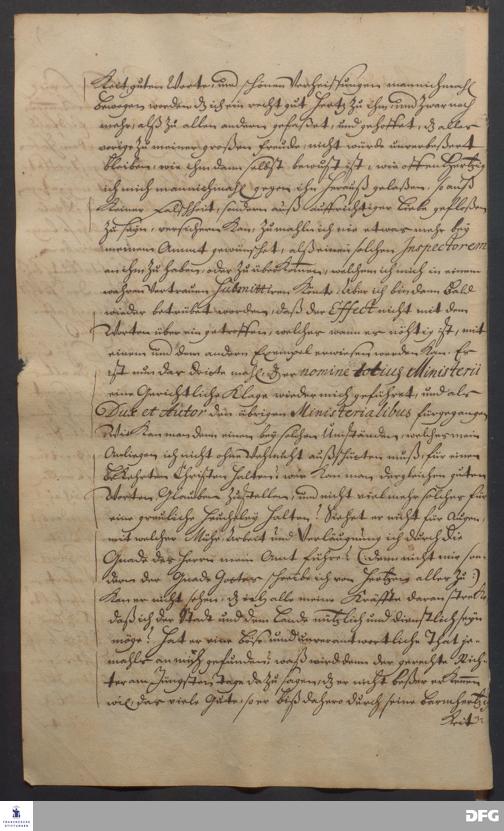 Keit, guten Worte, und schönen Verheissungen mannichmahl
bewogen worden dz ich ein recht gut Hertz zu ihm, und zwar noch
mehr, alß zu allen andern gefasset, und gehoffet, dz alles
vorige zu meiner großen Freude, nicht würde unverbessert
bleiben, wie ihm dann selbst bewust ist, wie offenhertzig
ich mich mannichmahl gegen ihn herauß gelaßen, so auß
Keiner Falschheit, sondern auß auffrichtiger Liebe geflossen
zu seyn, versichern Kan, zumahln ich nie etwas mehr bey
meinem Ammt gewünschet, alß einen solchen Inspectorem
an ihm zu haben, oder zu überkommen, welchem ich mich in einem
wahren Vertrauen submittiren Könte, Aber ich bin dann bald
wieder betrübet worden, daß der Effect nicht mit den
Worten überein getroffen, welches wann es nöhtig ist, mit
einem und dem andern Exempel erwiesen werden Kan. Er
ist nun das dritte mahl, dz er nomine totius Ministerii
eine Gerichtliche Klage wieder mich geführet, und als
Dux et Autor den übrigen Ministerialibus fürgegangen
Wie Kan man dann einen bey solchen Umständen, welches mein
Anliegen ich nicht ohne Wehmuht außschütten muß, für einen
bekehrten Christen halten? wie Kan man dergleichen guten
Worten Glauben zustellen, und nicht vielmehr solches für
eine greuliche Heucheley halten? Siehet er nicht für Augen,
mit welcher Mühe, Arbeit und Verläugnung ich durch die
Gnade des Herrn mein Amt führe? (: denn nicht mir, son-
dern der Gnade Gottes schreibe ich von Hertzen alles zu :)
Kan er nicht sehen, dz ich alle meine Kräffte daran strecke
daß ich der Stadt und dem Lande nützlich und dienstlich seyn
möge? Hat er eine böse und unverantwortliche That je-
mahls an mir gefunden? waß wird denn der gerechte Rich-
ter am Jüngsten Tage dazu sagen, dz er nicht beßer erkennen
wil, das viele Gute, so er biß dahero durch seine barmhertzig
Keit
FRANCKESCHE STIFTUNGEN
DFG